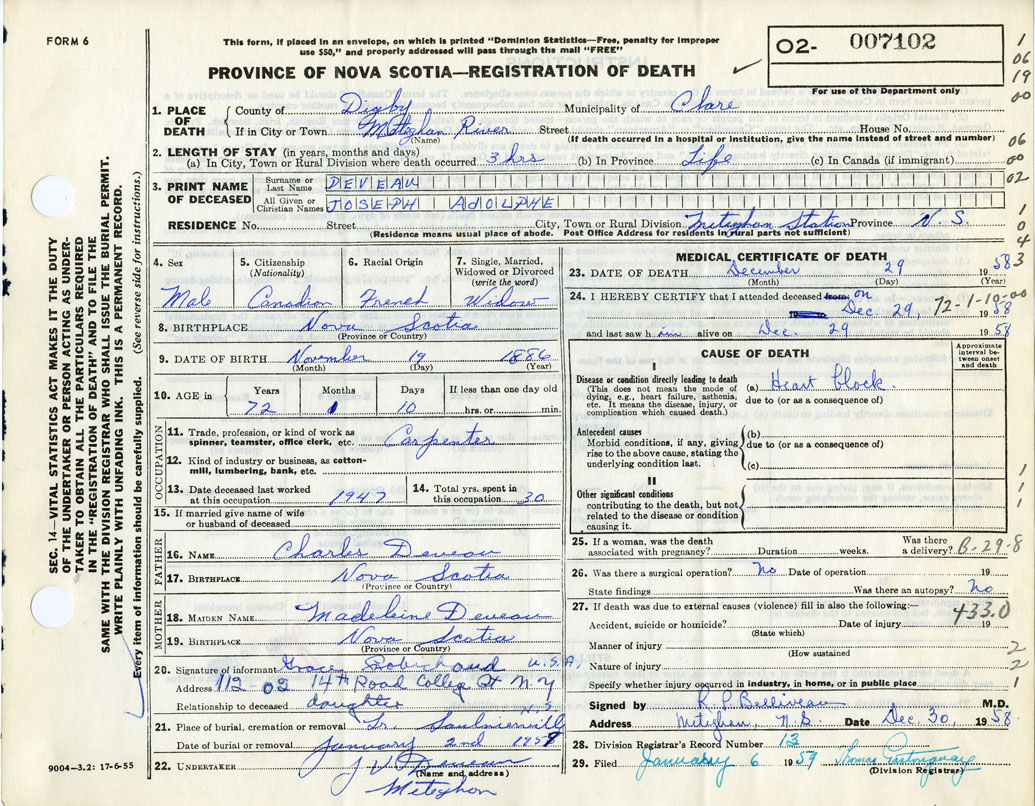 FORM 6
This form, if placed in an envelope, on which is printed "Dominion Statistics—Free, penalty for improper
use $50," and properly addressed will pass through the mail "FREE"
PROVINCE OF NOVA SCOTIA—REGISTRATION OF DEATH
02- 007102
For use of the Department only
1. PLACE OF DEATH
County of Digby Municipality of Clare
If in City or Town Meteghan River Street House No.
(Name) (If death occurred in a hospital or institution, give the name instead of street and number)
2. LENGTH OF STAY (in years, months and days)
(a) In City, Town or Rural Division where death occurred 3 hrs (b) In Province Life (c) In Canada (if immigrant)
3. PRINT NAME OF DECEASED
Surname or Last Name DEVEAU
All Given or Christian Names JOSEPH ADOLPHE
RESIDENCE No. Street City, Town or Rural Division Meteghan Station Province N.S.
(Residence means usual place of abode. Post Office Address for residents in rural parts not sufficient)
4. Sex Male
5. Citizenship (Nationality) Canadian
6. Racial Origin French
7. Single, Married, Widowed or Divorced (write the word) Widow
8. BIRTHPLACE Nova Scotia
(Province or Country)
9. DATE OF BIRTH November 19 1886
(Month) (Day) (Year)
10. AGE in Years 72 Months 1 Days 10 If less than one day old hrs. or min.
OCCUPATION
11. Trade, profession, or kind of work as spinner, teamster, office clerk, etc. Carpenter
12. Kind of industry or business, as cotton-mill, lumbering, bank, etc.
13. Date deceased last worked at this occupation 1947
14. Total yrs. spent in this occupation 30
15. If married give name of wife or husband of deceased
FATHER
16. NAME Charles Deveau
17. BIRTHPLACE Nova Scotia
(Province or Country)
MOTHER
18. MAIDEN NAME Madeleine Deveau
19. BIRTHPLACE Nova Scotia
(Province or Country)
20. Signature of informant Grace Robichaud U.S.A.
Address 112-02 14th Road College Pt N.Y
Relationship to deceased daughter
21. Place of burial, cremation or removal Saulnierville N.S
Date of burial or removal January 2nd 1959
22. UNDERTAKER J V Deveau
(Name and address)
Meteghan
9004-3.2: 17-6-55
SEC. 14—VITAL STATISTICS ACT MAKES IT THE DUTY
OF THE UNDERTAKER OR PERSON ACTING AS UNDER-
TAKER TO OBTAIN ALL THE PARTICULARS REQUIRED
IN THE "REGISTRATION OF DEATH" AND TO FILE THE
SAME WITH THE DIVISION REGISTRAR WHO SHALL ISSUE THE BURIAL PERMIT.
WRITE PLAINLY WITH UNFADING INK. THIS IS A PERMANENT RECORD.
Every item of information should be carefully supplied. (See reverse side for instructions.)
MEDICAL CERTIFICATE OF DEATH
23. DATE OF DEATH December 29 1958
(Month) (Day) (Year)
24. I HEREBY CERTIFY that I attended deceased from: on
Dec. 29, 1958
72-1-10-00
and last saw him alive on Dec. 29 1958
CAUSE OF DEATH
Approximate interval between onset and death
I
Disease or condition directly leading to death
(This does not mean the mode of dying, e.g., heart failure, asthenia, etc. It means the disease, injury, or complication which caused death.)
(a) Heart block.
due to (or as a consequence of)
Antecedent causes
Morbid conditions, if any, giving rise to the above cause, stating the underlying condition last.
(b)
due to (or as a consequence of)
(c)
II
Other significant conditions
contributing to the death, but not related to the disease or condition causing it.
25. If a woman, was the death associated with pregnancy? Duration weeks. Was there a delivery? B-29-8
26. Was there a surgical operation? No Date of operation 19
State findings Was there an autopsy? No
27. If death was due to external causes (violence) fill in also the following:—
433.0
Accident, suicide or homicide? Date of injury 19
(State which)
Manner of injury
(How sustained
Nature of injury
Specify whether injury occurred in industry, in home, or in public place
Signed by R. P Belliveau M.D.
Address Meteghan, N.S. Date Dec. 30, 1958.
28. Division Registrar's Record Number 13
29. Filed January 6 1959
(Division Registrar)
1
06
17
00
06
00
02
1
0
4
3
1
1
1
2
2
1